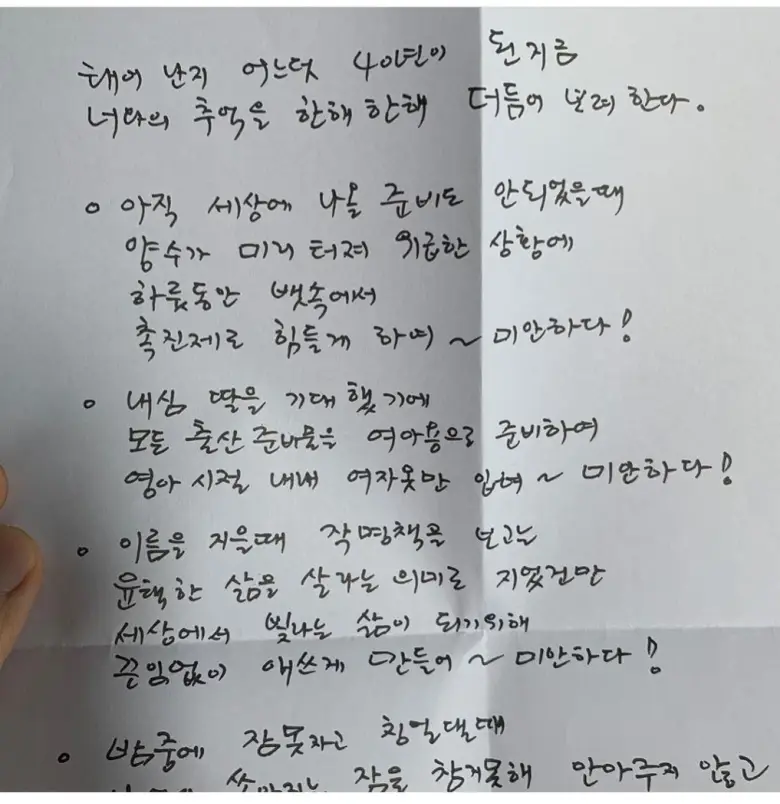 태어 난지 어느덧 40년이 된 지금
너와의 추억을 한해 한해 더듬어 보려 한다.
○ 아직 세상에 나올 준비도 안되었을때
양수가 미리 터져 위급한 상황에
하룻동안 뱃속에서
촉진제로 힘들게 하여 ~ 미안하다!
○ 내심 딸을 기대 했기에
모든 출산 준비물을 여아용으로 준비하여
영아 시절 내내 여자옷만 입혀 ~ 미안하다!
○ 이름을 지을때 작명책을 보고는
윤택한 삶을 살라는 의미로 지었건만
세상에서 빛나는 삶이 되기위해
끈임없이 애쓰게 만들어 ~ 미안하다!
○ 밤중에 잠못자고 칭얼댈때
쏟아지는 잠을 참지못해 안아주지 않고